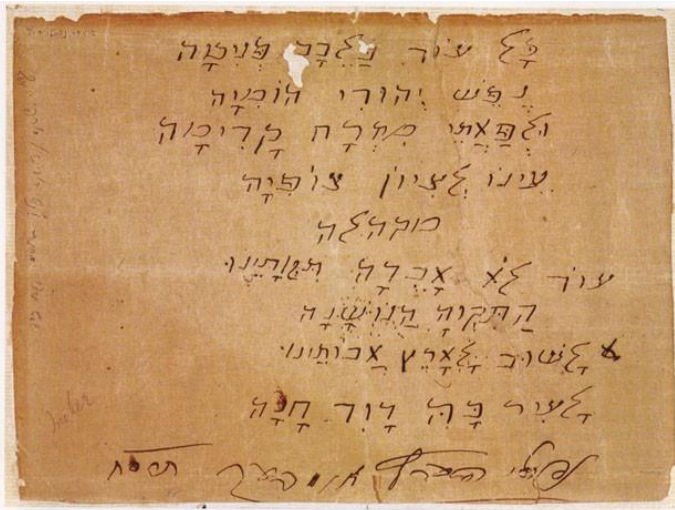 כָּל עוֹד בַּלֵּבָב פְּנִימָה
נֶפֶשׁ יְהוּדִי הוֹמִיָּה
וּלְפַאֲתֵי מִזְרָח קָדִימָה
עֵינוֹ לְצִיוֹן צוֹפִיָּה
מקהלה
עוֹד לֹא אָבְדָה תִּקְוָתֵינוּ
הַתִּקְוָה הַנּוֹשָׁנָה
לָשׁוּב לָאָרֶץ אֲבוֹתֵינוּ
לָעִיר בָּהּ דָּוִד חָנָה
נפתלי הערץ אימבער תרסח
Imber